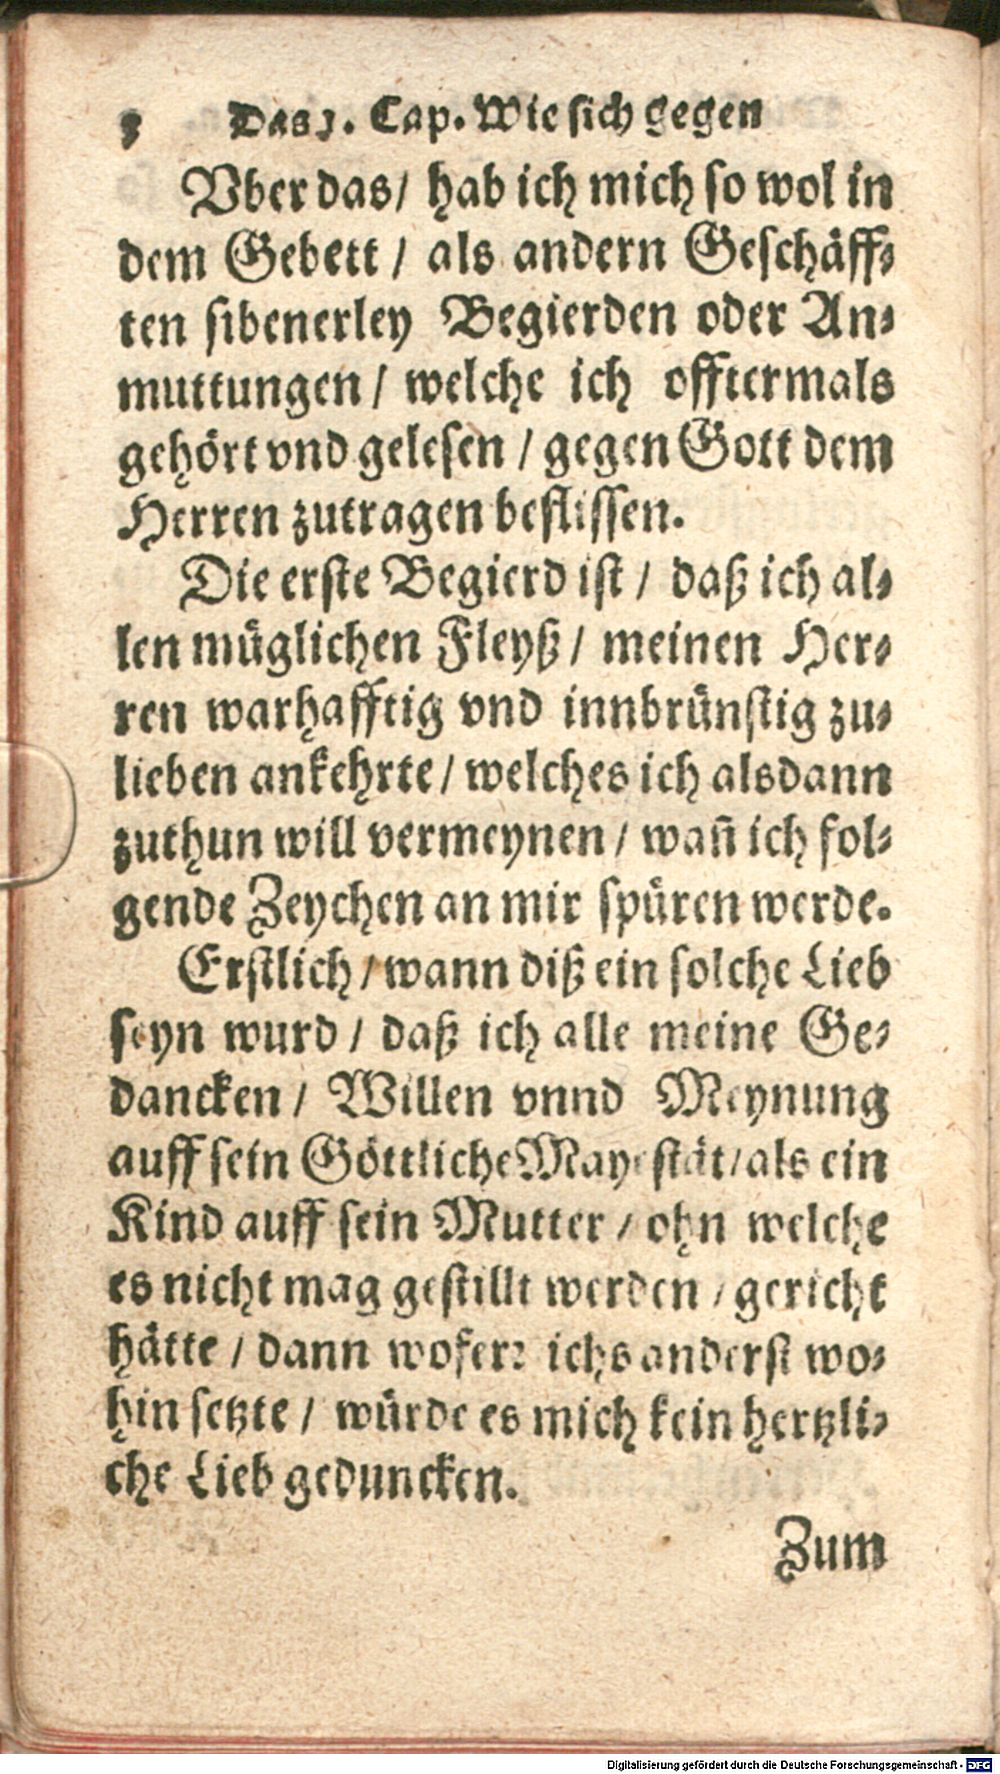 Das 1. Cap. Wie sich gegen
Vber das/ hab ich mich so wol in
dem Gebett / als andern Geschäff⸗
ten sibenerley Begierden oder An⸗
muttungen / welche ich offtermals
gehört vnd gelesen / gegen Gott dem
Herren zutragen beflissen.
Die erste Begierd ist / daß ich al⸗
len müglichen Fleyß / meinen Her⸗
ren warhafftig vnd innbrünstig zu⸗
lieben ankehrte / welches ich alsdann
zuthun will vermeynen / wañ ich fol⸗
gende Zeychen an mir spüren werde.
Erstlich / wann diß ein solche Lieb
seyn wurd / daß ich alle meine Ge⸗
dancken / Willen vnnd Meynung
auff sein Göttliche Mayestät / als ein
Kind auff sein Mutter / ohn welche
es nicht mag gestillt werden / gericht
hätte / dann wofern ichs anderst wo⸗
hin setzte / würde es mich kein hertzli⸗
che Lieb geduncken.
Zum
Digitalisierung gefördert durch die Deutsche Forschungsgemeinschaft - DFG